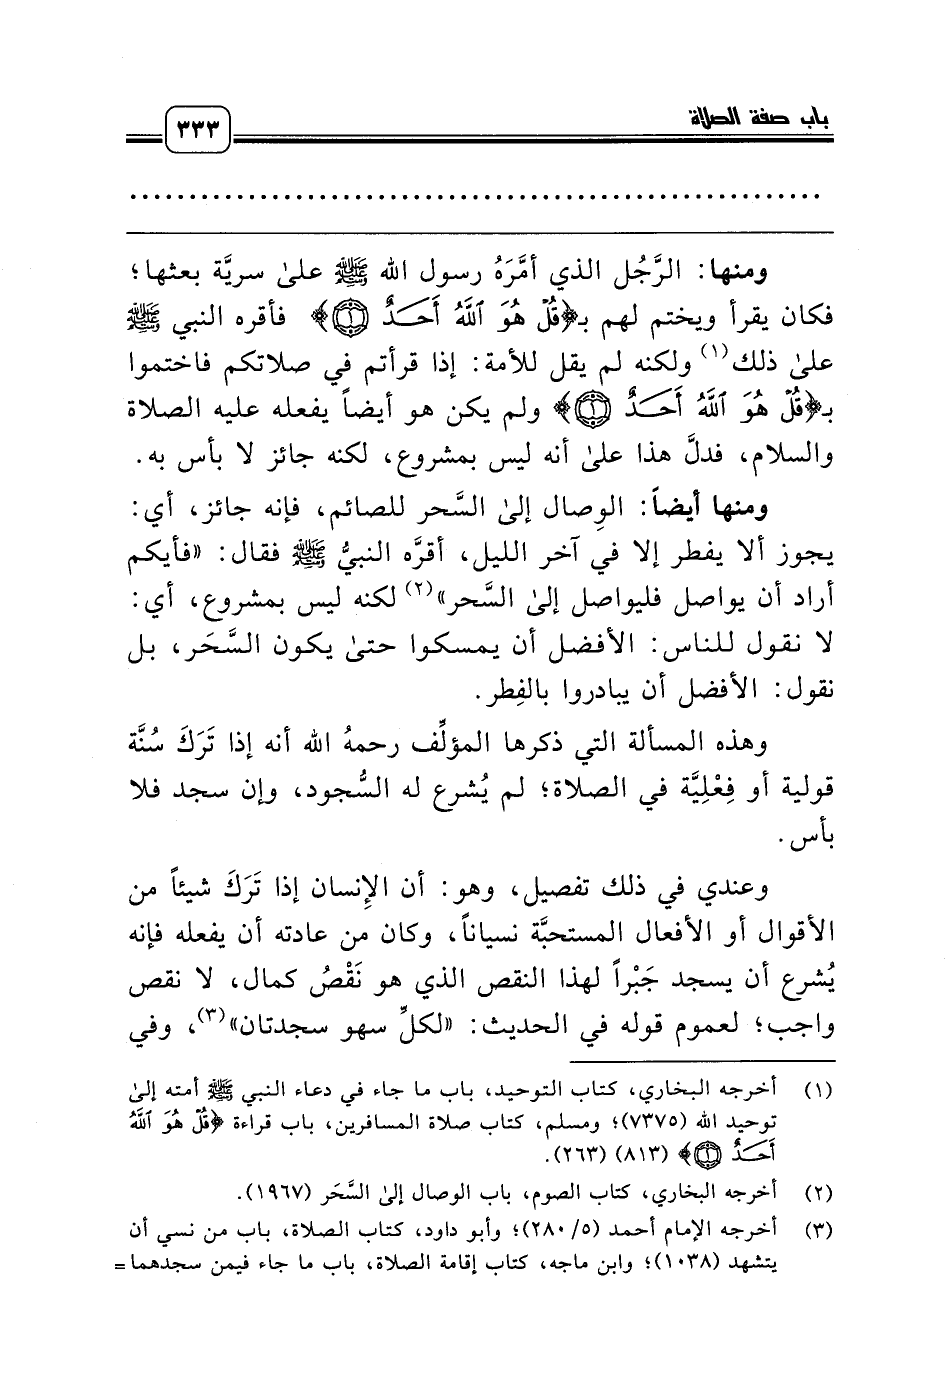 باب صفة الصلاة
٣٣٣
ومنها: الرَّجُل الذي أمَّرَهُ رسول الله ﷺ علىٰ سريَّة بعثها؛
فكان يقرأ ويختم لهم بـ﴿قُلْ هُوَ ٱللَّهُ أَحَدٌ ۝١﴾ فأقره النبي ﷺ
علىٰ ذلك(١) ولكنه لم يقل للأمة: إذا قرأتم في صلاتكم فاختموا
بـ﴿قُلْ هُوَ ٱللَّهُ أَحَدٌ ۝١﴾ ولم يكن هو أيضاً يفعله عليه الصلاة
والسلام، فدلَّ هذا علىٰ أنه ليس بمشروع، لكنه جائز لا بأس به.
ومنها أيضاً: الوِصال إلىٰ السَّحر للصائم، فإنه جائز، أي:
يجوز ألا يفطر إلا في آخر الليل، أقرَّه النبيُّ ﷺ فقال: «فأيكم
أراد أن يواصل فليواصل إلىٰ السَّحر»(٢) لكنه ليس بمشروع، أي:
لا نقول للناس: الأفضل أن يمسكوا حتىٰ يكون السَّحَر، بل
نقول: الأفضل أن يبادروا بالفِطر.
وهذه المسألة التي ذكرها المؤلِّف رحمهُ الله أنه إذا تَرَكَ سُنَّة
قولية أو فِعْلِيَّة في الصلاة؛ لم يُشرع له السُّجود، وإن سجد فلا
بأس.
وعندي في ذلك تفصيل، وهو: أن الإِنسان إذا تَرَكَ شيئاً من
الأقوال أو الأفعال المستحبَّة نسياناً، وكان من عادته أن يفعله فإنه
يُشرع أن يسجد جَبْراً لهذا النقص الذي هو نَقْصُ كمال، لا نقص
واجب؛ لعموم قوله في الحديث: «لكلِّ سهو سجدتان»(٣)، وفي
(١) أخرجه البخاري، كتاب التوحيد، باب ما جاء في دعاء النبي ﷺ أمته إلىٰ
توحيد الله (٧٣٧٥)؛ ومسلم، كتاب صلاة المسافرين، باب قراءة ﴿قُلْ هُوَ ٱللَّهُ
أَحَدٌ ۝١﴾ (٨١٣) (٢٦٣).
(٢) أخرجه البخاري، كتاب الصوم، باب الوصال إلىٰ السَّحَر (١٩٦٧).
(٣) أخرجه الإمام أحمد (٥/ ٢٨٠)؛ وأبو داود، كتاب الصلاة، باب من نسي أن
يتشهد (١٠٣٨)؛ وابن ماجه، كتاب إقامة الصلاة، باب ما جاء فيمن سجدهما =